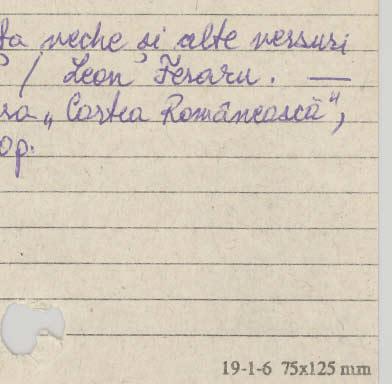 ta veche și alte versuri
/ Leon Feraru. —
ra „Cartea Românească",
op.
19-1-6 75x125 mm